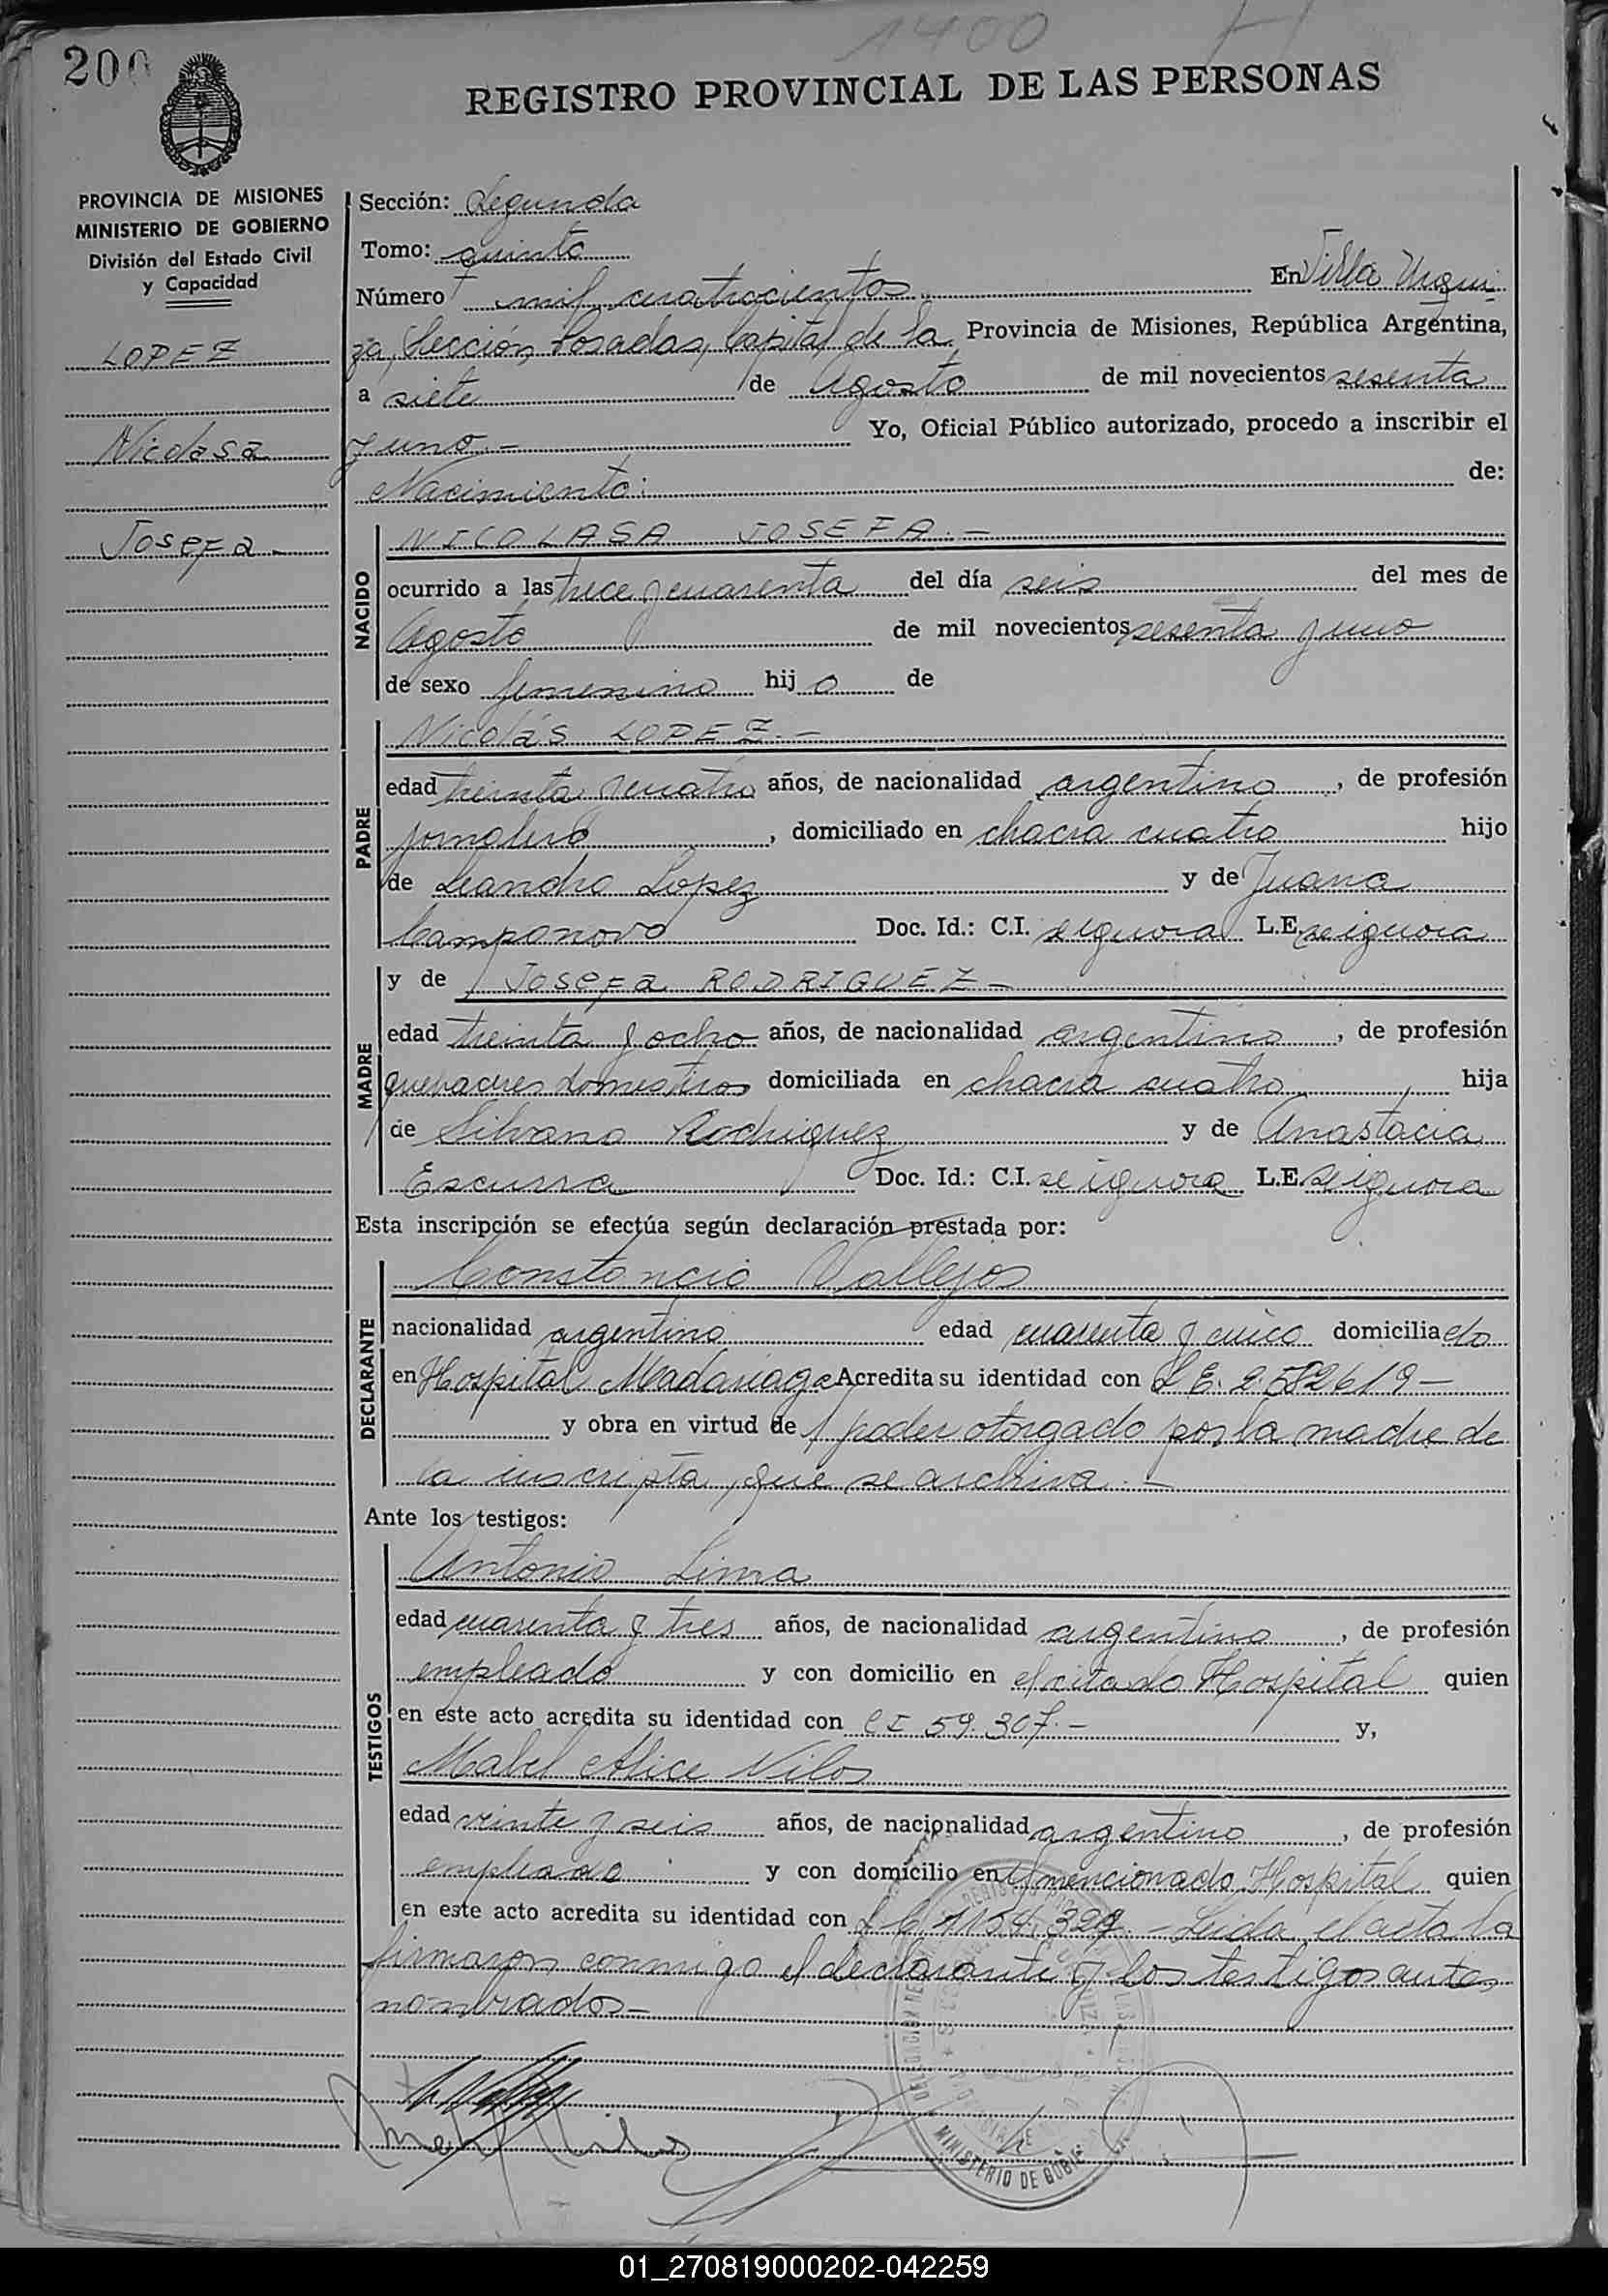 1400
200
REGISTRO PROVINCIAL DE LAS PERSONAS
PROVINCIA DE MISIONES
MINISTERIO DE GOBIERNO
División del Estado Civil
y Capacidad
LOPEZ
Nicolasa
Josefa -
Sección: Segunda
Tomo: quinto
Número mil cuatrocientos En Villa Urqui-
za, Sección Posadas, Capital de la Provincia de Misiones, República Argentina,
a siete de Agosto de mil novecientos sesenta
y uno - Yo, Oficial Público autorizado, procedo a inscribir el
Nacimiento: de:
NACIDO
NICOLASA JOSEFA. -
ocurrido a las trece y cuarenta del día seis del mes de
Agosto de mil novecientos sesenta y uno
de sexo femenino hij a de
PADRE
Nicolás LOPEZ. -
edad treinta y cuatro años, de nacionalidad argentino, de profesión
jornalero, domiciliado en chacra cuatro hijo
de Leandro Lopez y de Juana
Camponovo Doc. Id.: C.I. se ignora L.E. se ignora
MADRE
y de Josefa RODRIGUEZ -
edad treinta y ocho años, de nacionalidad argentina, de profesión
quehaceres domesticos domiciliada en chacra cuatro hija
de Silvano Rodriguez y de Anastacia
Escurra Doc. Id.: C.I. se ignora L.E. se ignora
Esta inscripción se efectúa según declaración prestada por:
DECLARANTE
Constancio Vallejos
nacionalidad argentino edad cuarenta y cinco domiciliado
en Hospital Madariaga Acredita su identidad con L E. 2.582619 -
y obra en virtud de poder otorgado por la madre de
la inscripta, que se archiva. -
Ante los testigos:
TESTIGOS
Antonio Lima
edad cuarenta y tres años, de nacionalidad argentino, de profesión
empleado y con domicilio en el citado Hospital quien
en este acto acredita su identidad con C I 59.307. - y,
Mabel Alice Nilos
edad veinte y seis años, de nacionalidad argentina, de profesión
empleada y con domicilio en el mencionado Hospital quien
en este acto acredita su identidad con L C - Leida el acta la
firmaron conmigo el declarante y los testigos antes
nombrados -
MINISTERIO DE GOBIE
01_270819000202-042259